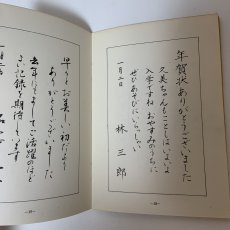 年賀状ありがとうございました
久美ちゃんもことしはいよいよ
入学ですね おやすみのうちに
ぜひあそびにいらっしゃい
一月二日
林 三郎
早々とお美しい初だより
ありがとうございました
去年にもましてご活躍のほど
よい記録を期待します